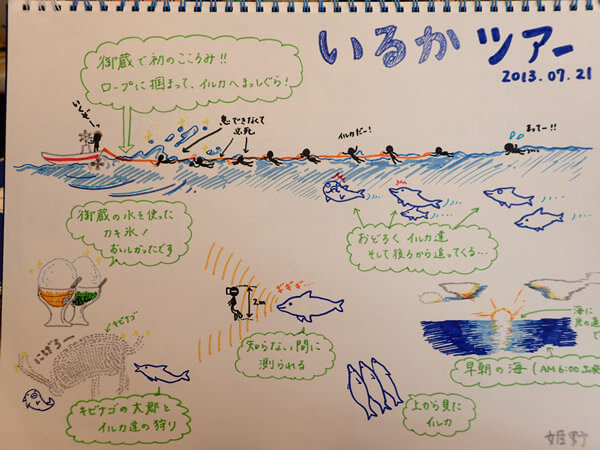 いるか ツアー
2013.07.21
御蔵で初のこころみ!!
ロープに掴まって、イルカへまっしぐら!
息できなくて
必死
イルカだー!
まってー!!
御蔵の水を使った
カキ氷!
おいしかったです
おどろくイルカ達
そして後ろから追ってくる…
キビナゴ
にげろー
キビナゴの大群と
イルカ達の狩り
2m
ギギギ…
知らない間に
測られる
上から見た
イルカ
海に
早朝の海 (AM6:00
姫野